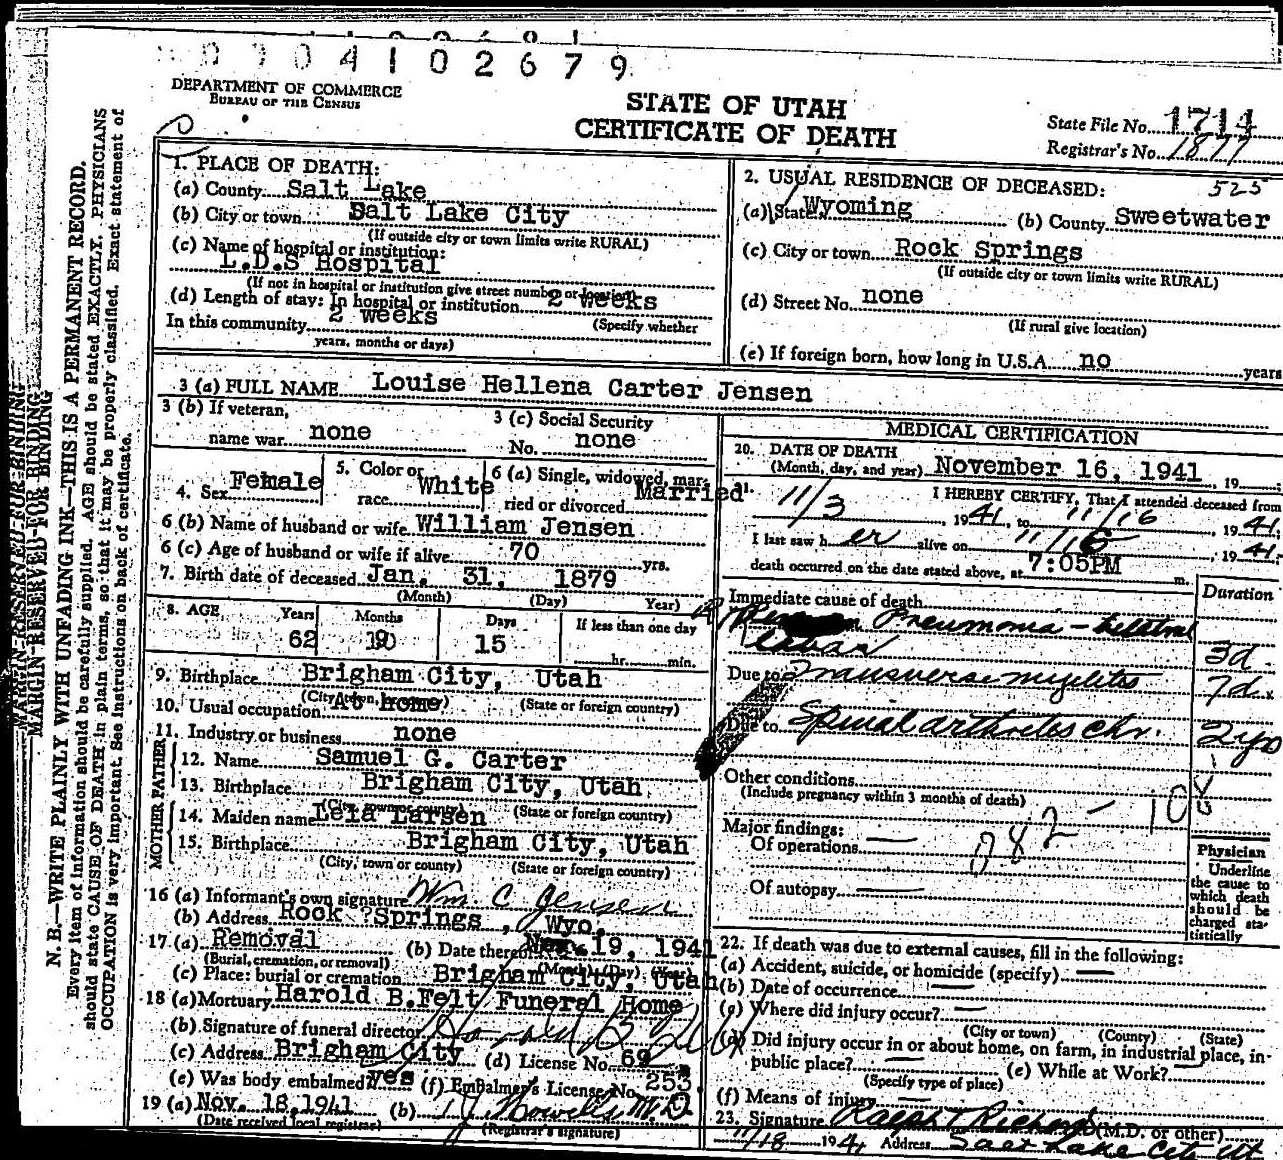 0704102679
DEPARTMENT OF COMMERCE
BUREAU OF THE CENSUS
STATE OF UTAH
CERTIFICATE OF DEATH
State File No. 1714
Registrar's No. 1877
MARGIN RESERVED FOR BINDING
N. B.—WRITE PLAINLY WITH UNFADING INK—THIS IS A PERMANENT RECORD.
Every item of information should be carefully supplied. AGE should be stated EXACTLY. PHYSICIANS
should state CAUSE OF DEATH in plain terms, so that it may be properly classified. Exact statement of
OCCUPATION is very important. See instructions on back of certificate.
1. PLACE OF DEATH:
(a) County Salt Lake
(b) City or town Salt Lake City
(If outside city or town limits write RURAL)
(c) Name of hospital or institution:
L.D.S Hospital
(If not in hospital or institution give street number or location)
(d) Length of stay: In hospital or institution 2 weeks
In this community 2 weeks (Specify whether
years, months or days)
2. USUAL RESIDENCE OF DECEASED: 525
(a) State Wyoming (b) County Sweetwater
(c) City or town Rock Springs
(If outside city or town limits write RURAL)
(d) Street No. none
(If rural give location)
(e) If foreign born, how long in U.S.A. no years
3 (a) FULL NAME Louise Hellena Carter Jensen
3 (b) If veteran,
name war none
3 (c) Social Security
No. none
4. Sex Female
5. Color or
race White
6 (a) Single, widowed, mar-
ried or divorced Married
6 (b) Name of husband or wife William Jensen
6 (c) Age of husband or wife if alive 70 yrs.
7. Birth date of deceased Jan. 31, 1879
(Month) (Day) Year)
8. AGE Years Months Days If less than one day
62 15
hr. min.
9. Birthplace Brigham City, Utah
(City, town, or county) (State or foreign country)
10. Usual occupation At home
11. Industry or business none
FATHER
12. Name Samuel G. Carter
13. Birthplace Brigham City, Utah
(City, town or county) (State or foreign country)
MOTHER
14. Maiden name Leia Larsen
15. Birthplace Brigham City, Utah
(City, town or county) (State or foreign country)
16 (a) Informant's own signature Wm. C Jensen
(b) Address Rock ?Springs, Wyo.
17 (a) Removal (b) Date thereof Nov. 19, 1941
(Burial, cremation, or removal) (Month) (Day) (Year)
(c) Place: burial or cremation Brigham City, Utah
18 (a) Mortuary Harold B.Felt Funeral Home
(b) Signature of funeral director Harold B Felt
(c) Address Brigham City (d) License No. 69
(e) Was body embalmed? yes (f) Embalmer's License No. 253.
19 (a) Nov. 18,1941 (b) M.D.
(Date received local registrar) (Registrar's signature)
MEDICAL CERTIFICATION
20. DATE OF DEATH
(Month, day, and year) November 16, 1941, 19
21. I HEREBY CERTIFY, That I attended deceased from
11/3, 1941, to 11/16, 1941;
I last saw her alive on 11/16, 1941;
death occurred on the date stated above, at 7:05PM m.
Immediate cause of death Duration
Pneumonia - bilateral
lobar 3d.
Due to Transverse myelitis 7d.
Due to Spinal arthritis chr. 2 yr
Other conditions
(Include pregnancy within 3 months of death)
Major findings:
Of operations —
Of autopsy —
Physician
Underline
the cause to
which death
should be
charged sta-
tistically
22. If death was due to external causes, fill in the following:
(a) Accident, suicide, or homicide (specify) —
(b) Date of occurrence —
(c) Where did injury occur? —
(City or town) (County) (State)
(d) Did injury occur in or about home, on farm, in industrial place, in
public place? — (e) While at Work?
(Specify type of place)
(f) Means of injury —
23. Signature Ralph T Richards (M.D. or other)
11/18 1941 Address Salt Lake City Ut